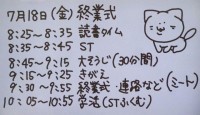 7月18日(金)終業式
8:25〜8:35 読書タイム
8:35〜8:45 ST
8:45〜9:15 大そうじ(30分間)
9:15〜9:25 さがえ
9:30〜9:55 終業式・連絡など(ミート)
10:05〜10:55 学活(STふくむ)